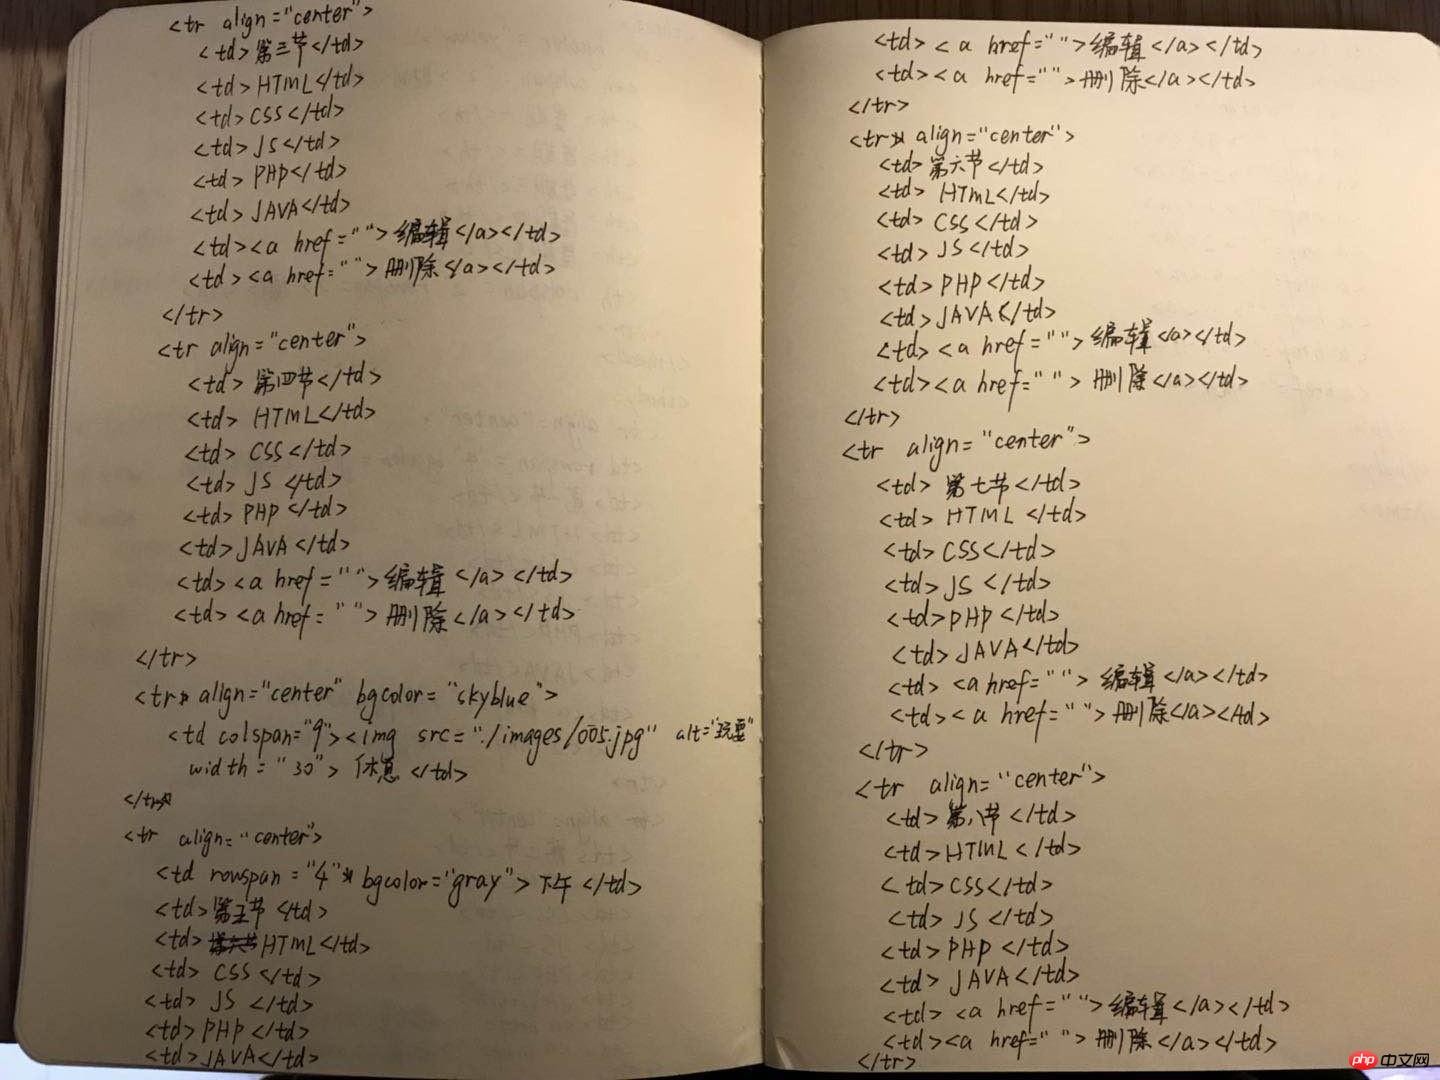 <tr align="center">
<td>第三节</td>
<td>HTML</td>
<td>CSS</td>
<td>JS</td>
<td>PHP</td>
<td>JAVA</td>
<td><a href="">编辑</a></td>
<td><a href="">删除</a></td>
</tr>
<tr align="center">
<td>第四节</td>
<td>HTML</td>
<td>CSS</td>
<td>JS</td>
<td>PHP</td>
<td>JAVA</td>
<td><a href="">编辑</a></td>
<td><a href="">删除</a></td>
</tr>
<tr align="center" bgcolor="skyblue">
<td colspan="9"><img src="./images/005.jpg" alt="玩耍"
width="30">休息</td>
</tr>
<tr align="center">
<td rowspan="4" bgcolor="gray">下午</td>
<td>第五节</td>
<td>HTML</td>
<td>CSS</td>
<td>JS</td>
<td>PHP</td>
<td>JAVA</td>
<td><a href="">编辑</a></td>
<td><a href="">删除</a></td>
</tr>
<tr align="center">
<td>第六节</td>
<td>HTML</td>
<td>CSS</td>
<td>JS</td>
<td>PHP</td>
<td>JAVA</td>
<td><a href="">编辑</a></td>
<td><a href="">删除</a></td>
</tr>
<tr align="center">
<td>第七节</td>
<td>HTML</td>
<td>CSS</td>
<td>JS</td>
<td>PHP</td>
<td>JAVA</td>
<td><a href="">编辑</a></td>
<td><a href="">删除</a></td>
</tr>
<tr align="center">
<td>第八节</td>
<td>HTML</td>
<td>CSS</td>
<td>JS</td>
<td>PHP</td>
<td>JAVA</td>
<td><a href="">编辑</a></td>
<td><a href="">删除</a></td>
</tr>
php 中文网